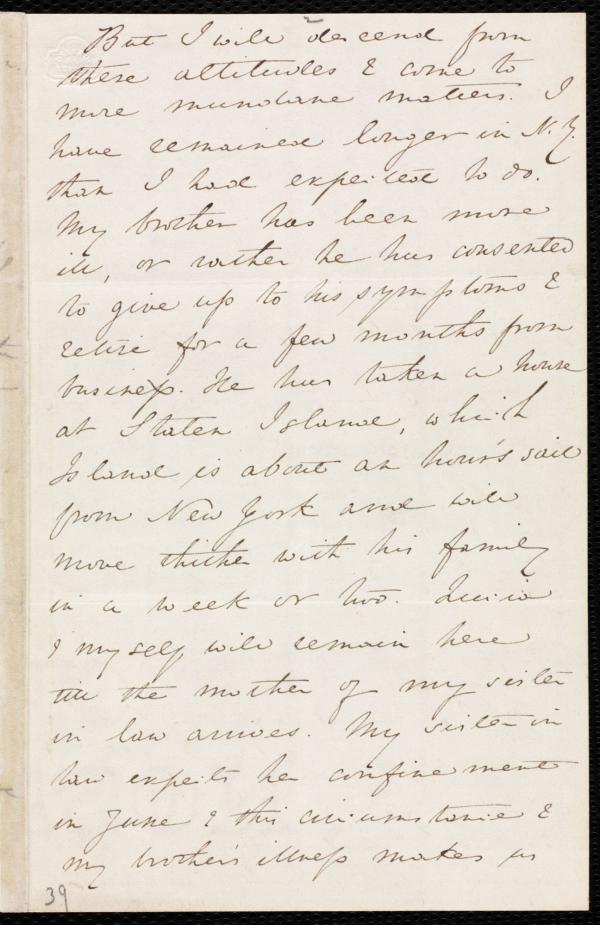 2
But I will descend from
these altitudes & come to
more mundane matters. I
have remained longer in N.Y.
than I had expected to do.
My brother has been more
ill, or rather he has consented
to give up to his symptoms &
retire for a few months from
business. He has taken a house
at Staten Island, which
Island is about an hour's sail
from New York and will
move thither with his family
in a week or two. Luccia
& myself will remain here
till the mother of my sister
in law arrives. My sister in
law expects her confinement
in June & this circumstance &
my brother's illness makes us
39